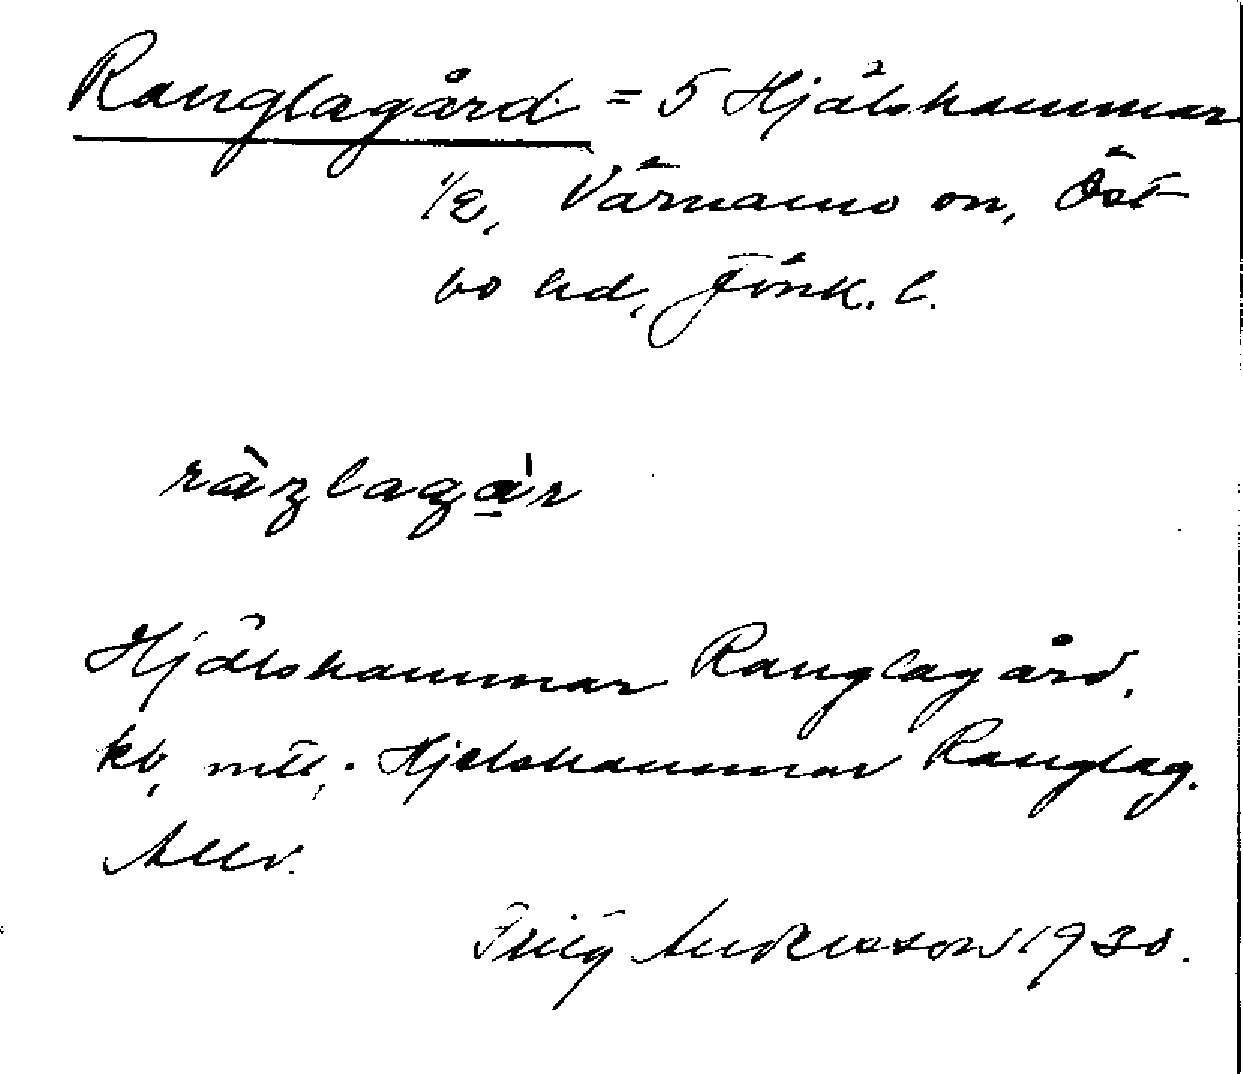 Ranglagård = 5 Hjälshammar
1/2, Värnamo sn, Öst
bo hd, Jönk. l.
ràŋlagá̱r
Hjälshammar Ranglagård,
kb, mtl,. Hjelshammar Ranglag.
Allv.
Frity Andersson 1930.